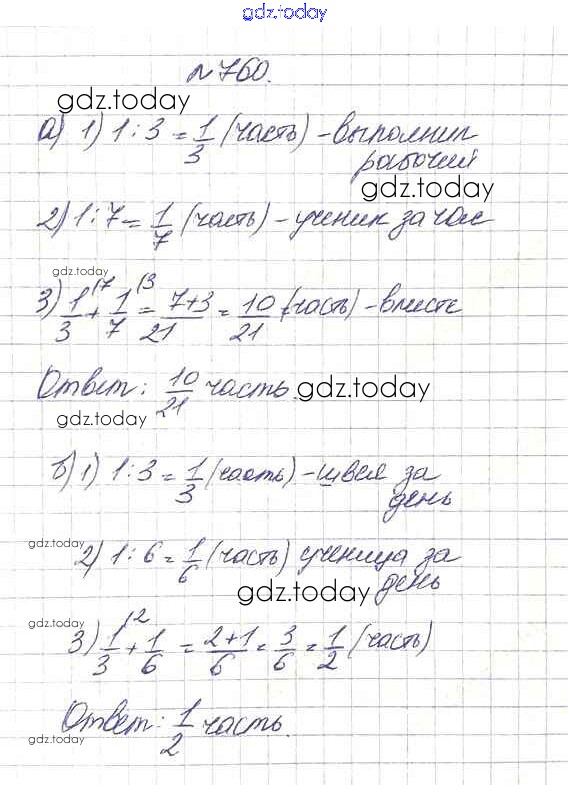 gdz.today
№760.
gdz.today
а) 1) 1 : 3 = 1/3 (часть) - выполнил
рабочий
gdz.today
2) 1 : 7 = 1/7 (часть) - ученик за час
gdz.today
3) 1/3 |7 + 1/7 |3 = 7+3/21 = 10/21 (часть) - вместе
Ответ: 10/21 часть.
gdz.today
gdz.today
б) 1) 1 : 3 = 1/3 (часть) - швея за
день
gdz.today
2) 1 : 6 = 1/6 (часть) ученица за
день
gdz.today
gdz.today
3) 1/3 |2 + 1/6 = 2+1/6 = 3/6 = 1/2 (часть)
Ответ: 1/2 часть.
gdz.today